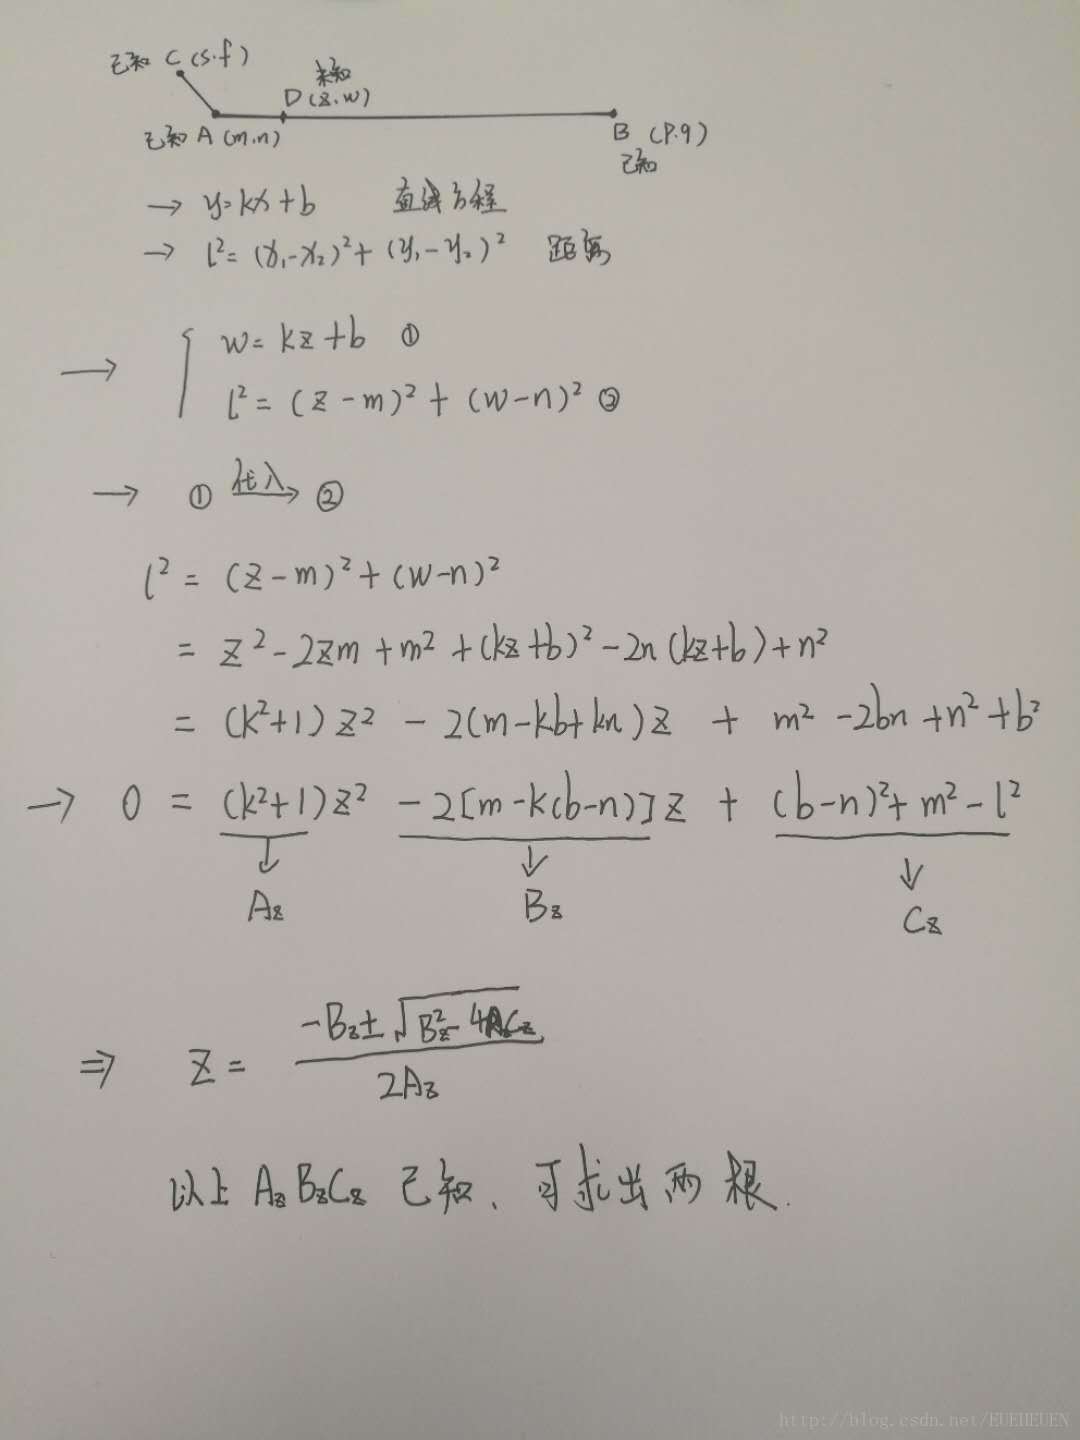 已知 C (s.f)
未知
D (z.w)
已知 A (m.n)
B (p.q)
已知
→ y=kx+b 直线方程
→ l²=(x₁-x₂)²+(y₁-y₂)² 距离
→ { w=kz+b ①
l²=(z-m)²+(w-n)² ②
→ ① 代入→ ②
l²=(z-m)²+(w-n)²
=z²-2zm+m²+(kz+b)²-2n(kz+b)+n²
=(k²+1)z²-2(m-kb+kn)z+m²-2bn+n²+b²
→ 0=(k²+1)z²-2[m-k(b-n)]z+(b-n)²+m²-l²
↓ ↓ ↓
Az Bz Cz
⇒ z=(-Bz±√(Bz²-4AzCz))/(2Az)
以上 Az Bz Cz 已知、可求出两根.
http://blog.csdn.net/EUEHEUEN